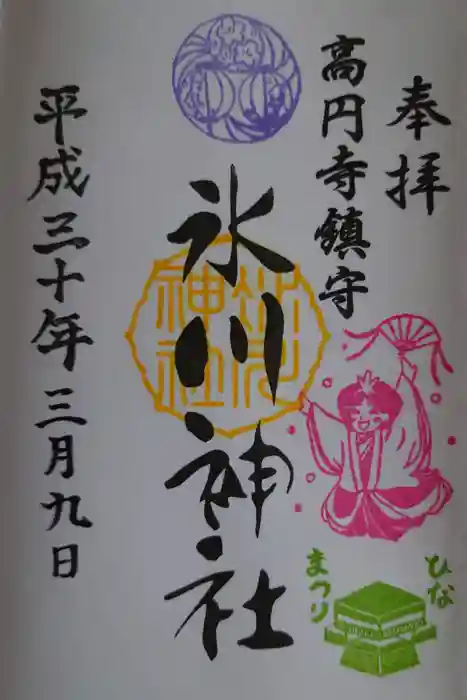 奉拝
高円寺鎮守
氷川神社
平成三十年三月九日
ひな
まつり